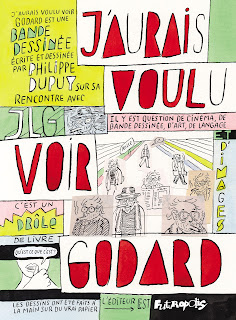 J'AURAIS VOULU VOIR
GODARD EST UNE
BANDE
DESSINÉE
ÉCRITE ET DESSINÉE
PAR PHILIPPE
DUPUY SUR SA
RENCONTRE AVEC
JLG
J'AURAIS
VOULU
IL Y EST QUESTION DE CINÉMA, DE
BANDE DESSINÉE, D'ART, DE LANGAGE
D'IMAGES
VOIR
C'EST UN
DRÔLE
DE LIVRE
QU'EST CE QUE C'EST?
GODARD
LES DESSINS ONT ÉTÉ FAITS À
LA MAIN SUR DU VRAI PAPIER
L'ÉDITEUR EST
Futuropolis